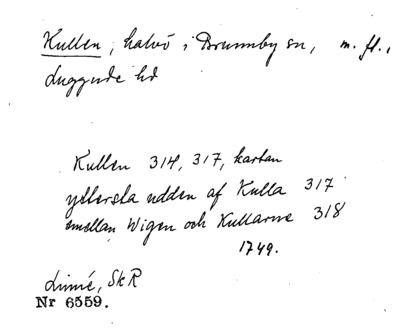 Kullen, halvö i Brunnby sn, m. fl.,
Luggude hd
Kullen 314, 317, kartan
yttersta udden af Kulla 317
emellan Wigen och Kullarne 318
1749.
Linné, SkR
Nr 6559.